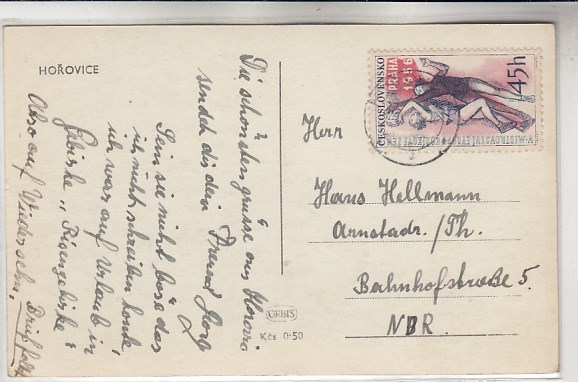 HOŘOVICE
Die schönsten grüsse aus Horovic
sendet dir dein Freund Jorg
Sein sie nicht böse das
ich nicht schreiben konte
ich war auf Urlaub in
Gbirske " Risengebirke "
Also auf Wiedersehn. Brief folgt
ORBIS
Kčs 0·50
ČESKOSLOVENSKO
PRAHA
1956
45h
Herr
Hans Hellmann
Arnstadt. /Th.
Bahnhofstraße 5.
NBR.